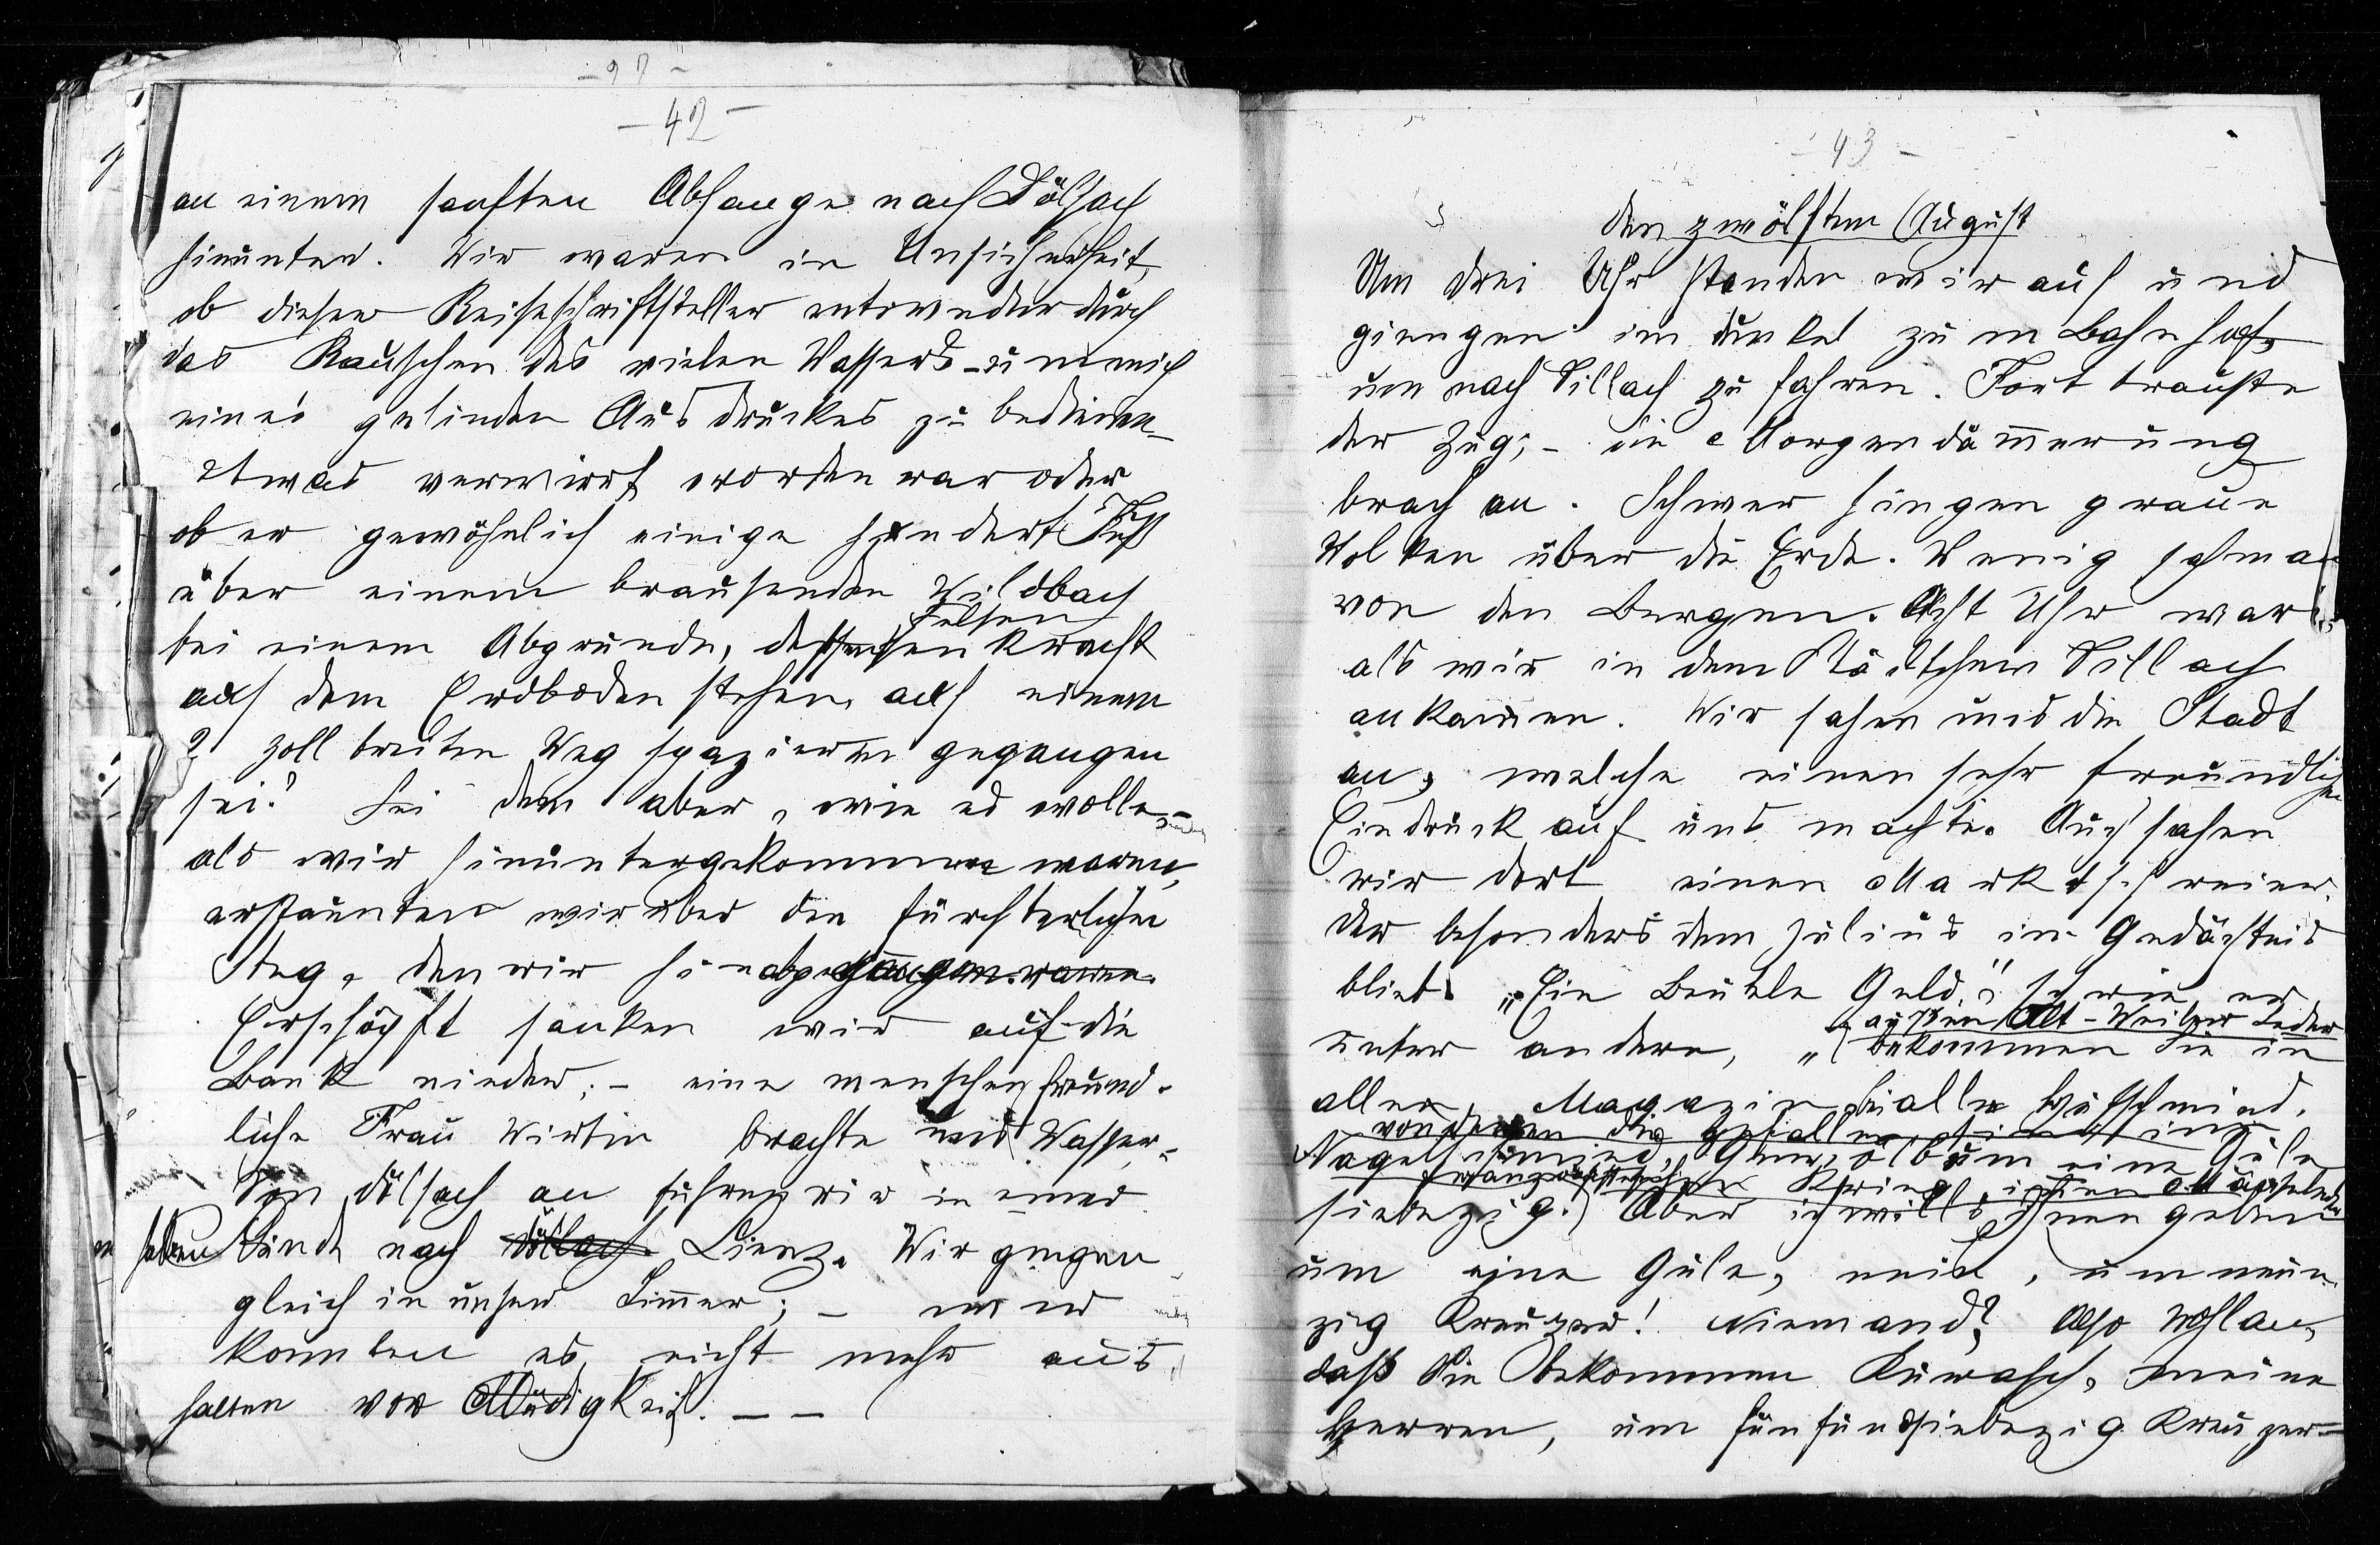 - 97 -
- 42 -
an einem sanften Abhange nach Dölsach
hinunter. Wir waren in Unsicherheit,
ob dieser Reiseschriftsteller entweder durch
das Rauschen des vielen Wassers - um mich
eines gelinden Ausdruckes zu bedienen -
etwas verwirrt worden war oder
ob er gewöhnlich einige hundert Fuß
über einem brausenden Wildbach
Felsen
bei einem Abgrunde, dessen senkrecht
auf dem Erdboden stehen, auf einem
2 Zoll breiten Weg spazieren gegangen
sei? Sei dem aber, wie es wolle, -
als wir hinuntergekommen waren,
erstaunten wir über den fürchterlichen
Steg, den wir hinabgegangen waren.
Erschöpft sanken wir auf die
Bank nieder; - eine menschenfreund-
liche Frau Wirtin brachte uns Wasser.
Von Dölsach an fuhren wir in einer
halben Stunde nach Döllach Lienz. Wir gingen
gleich in unser Zimmer; - wir
konnten es nicht mehr aus
halten vor Müdigkeit. - -
- 43 -
den zwölften August
Um drei Uhr standen wir auf und
giengen im Dunkel zum Bahnhof,
um nach Villach zu fahren. Fort brauste
der Zug; - die Morgendämmerung
brach an. Schwer hingen graue
Wolken über die Erde. Wenig sah man
von den Bergen. Acht Uhr war
als wir in dem Städtchen Villach
ankamen. Wir sahen uns die Stadt
an, welche einen sehr freundlichen
Eindruck auf uns machte. Auch sahen
wir dort einen Marktschreier,
der besonders dem Julius in Gedächtnis
blieb. "Ein Beutele Geld," schrie er
außen Alt-Weiber Leder
unter andern, "bekommen Sie in
allen Magazin bei alle
die gefallen sind im
Nagelschmied, um eine Gule
französischen Krieg, in
siebezig. Aber ich will's ihnen geben
um eine Gule, nein, um neun-
zig Kreuzer! Niemand? Also wohlan,
daß Sie bekommen meine
Herren, um fünfundsiebezig Kreuzer-